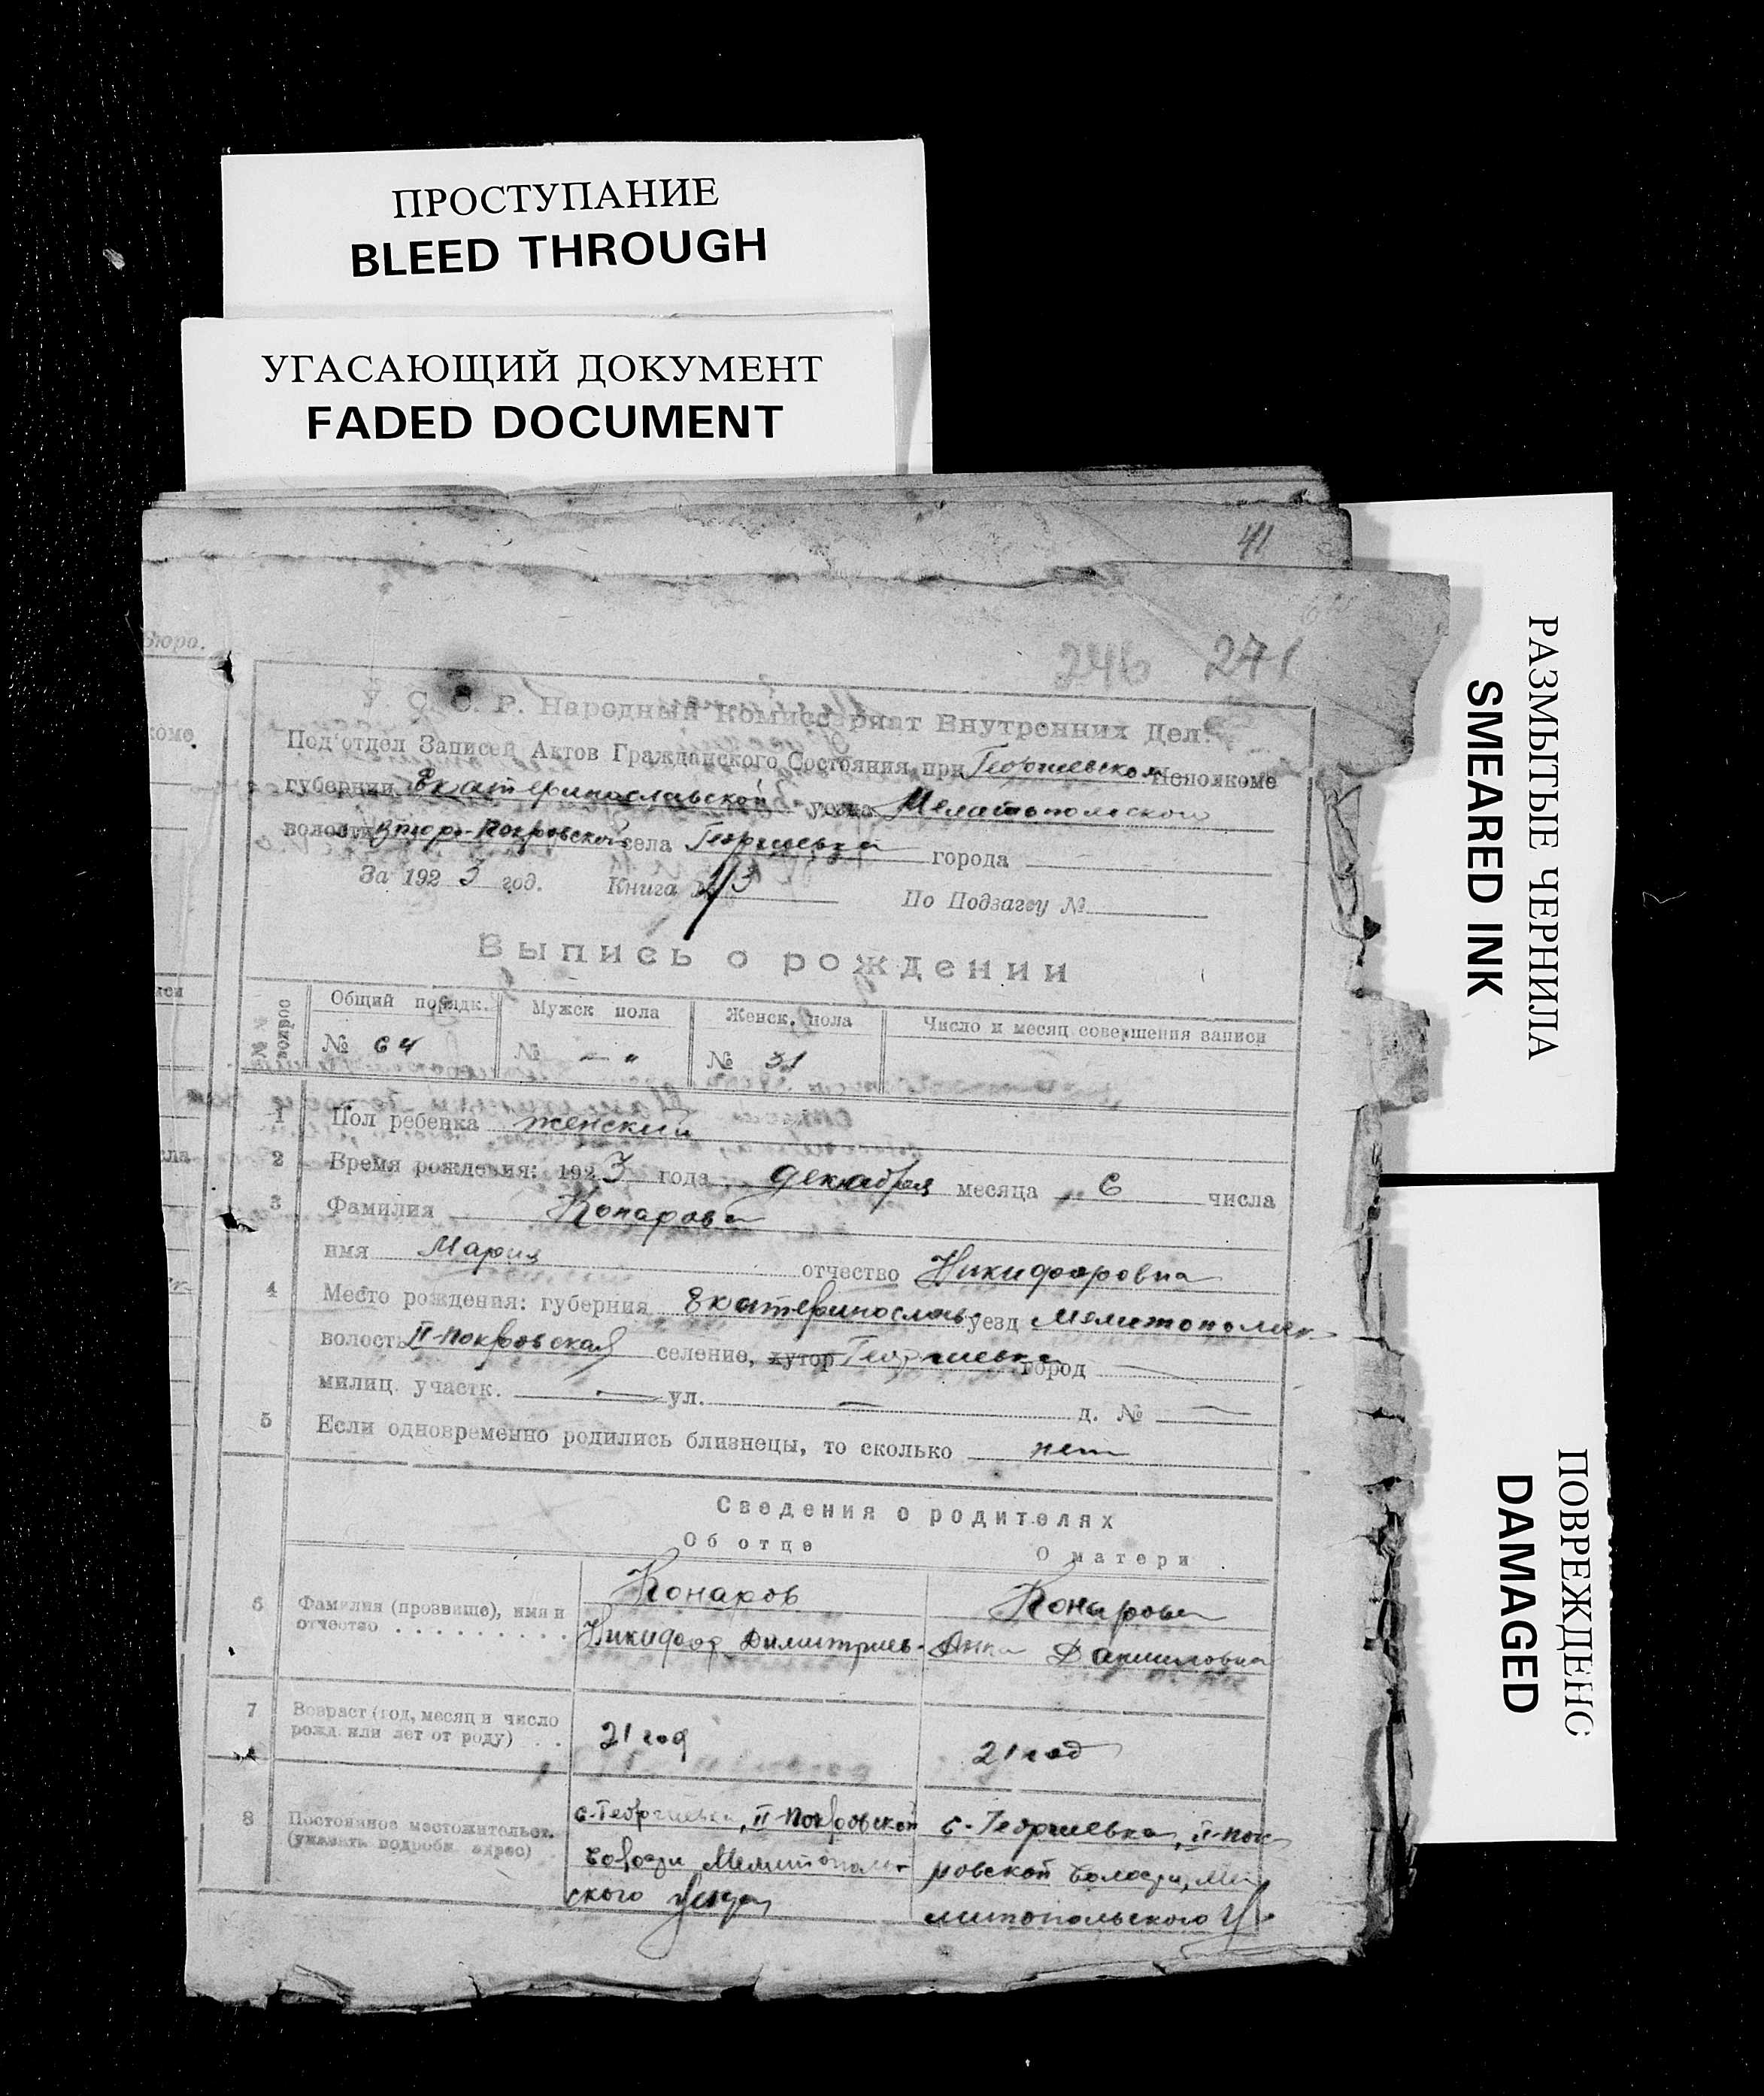 ПРОСТУПАНИЕ
BLEED THROUGH
УГАСАЮЩИЙ ДОКУМЕНТ
FADED DOCUMENT
41
Бюро.
246 271
У. С. С. Р. Народный Комиссариат Внутренних Дел.
Под'отдел Записей Актов Гражданского Состояния при Георгиевском Исполкоме
губернии Екатеринославской уезда
волости Втюро-Покровской села Георгиевка города
За 1923 год. Книга № По Подзагсу №
Выпись о рождении
№№ вопрос Общий порядк. Мужск пола Женск. пола Число и месяц совершения записи
№ 64 № — " № 31
1 Пол ребенка женский
2 Время рождения: 1923 года декабря месяца 6 числа
3 Фамилия Конарова
имя Мария отчество Никифоровна
4 Место рождения: губерния Екатеринослав уезд Мелитополск
волость II-Покровская селение, хутор Георгиевка город —
милиц. участк. — ул. — д. № —
5 Если одновременно родились близнецы, то сколько нет
Сведения о родителях
Об отце О матери
6 Фамилия (прозвище), имя и отчество Конаров Конарова
Никифор Димитриев- Анна Данииловна
7 Возраст (год, месяц и число рожд. или лет от роду) 21 год 21 год
8 Постоянное местожительст. (указать подробн. адрес) с-Георгиевка, II-Покровской с-Георгиевка, II-Пок-
волости Мелитополь- ровской волости, Ме-
ского уезда литопольского У
РАЗМЫТЫЕ ЧЕРНИЛА
SMEARED INK
ПОВРЕЖДЕНС
DAMAGED